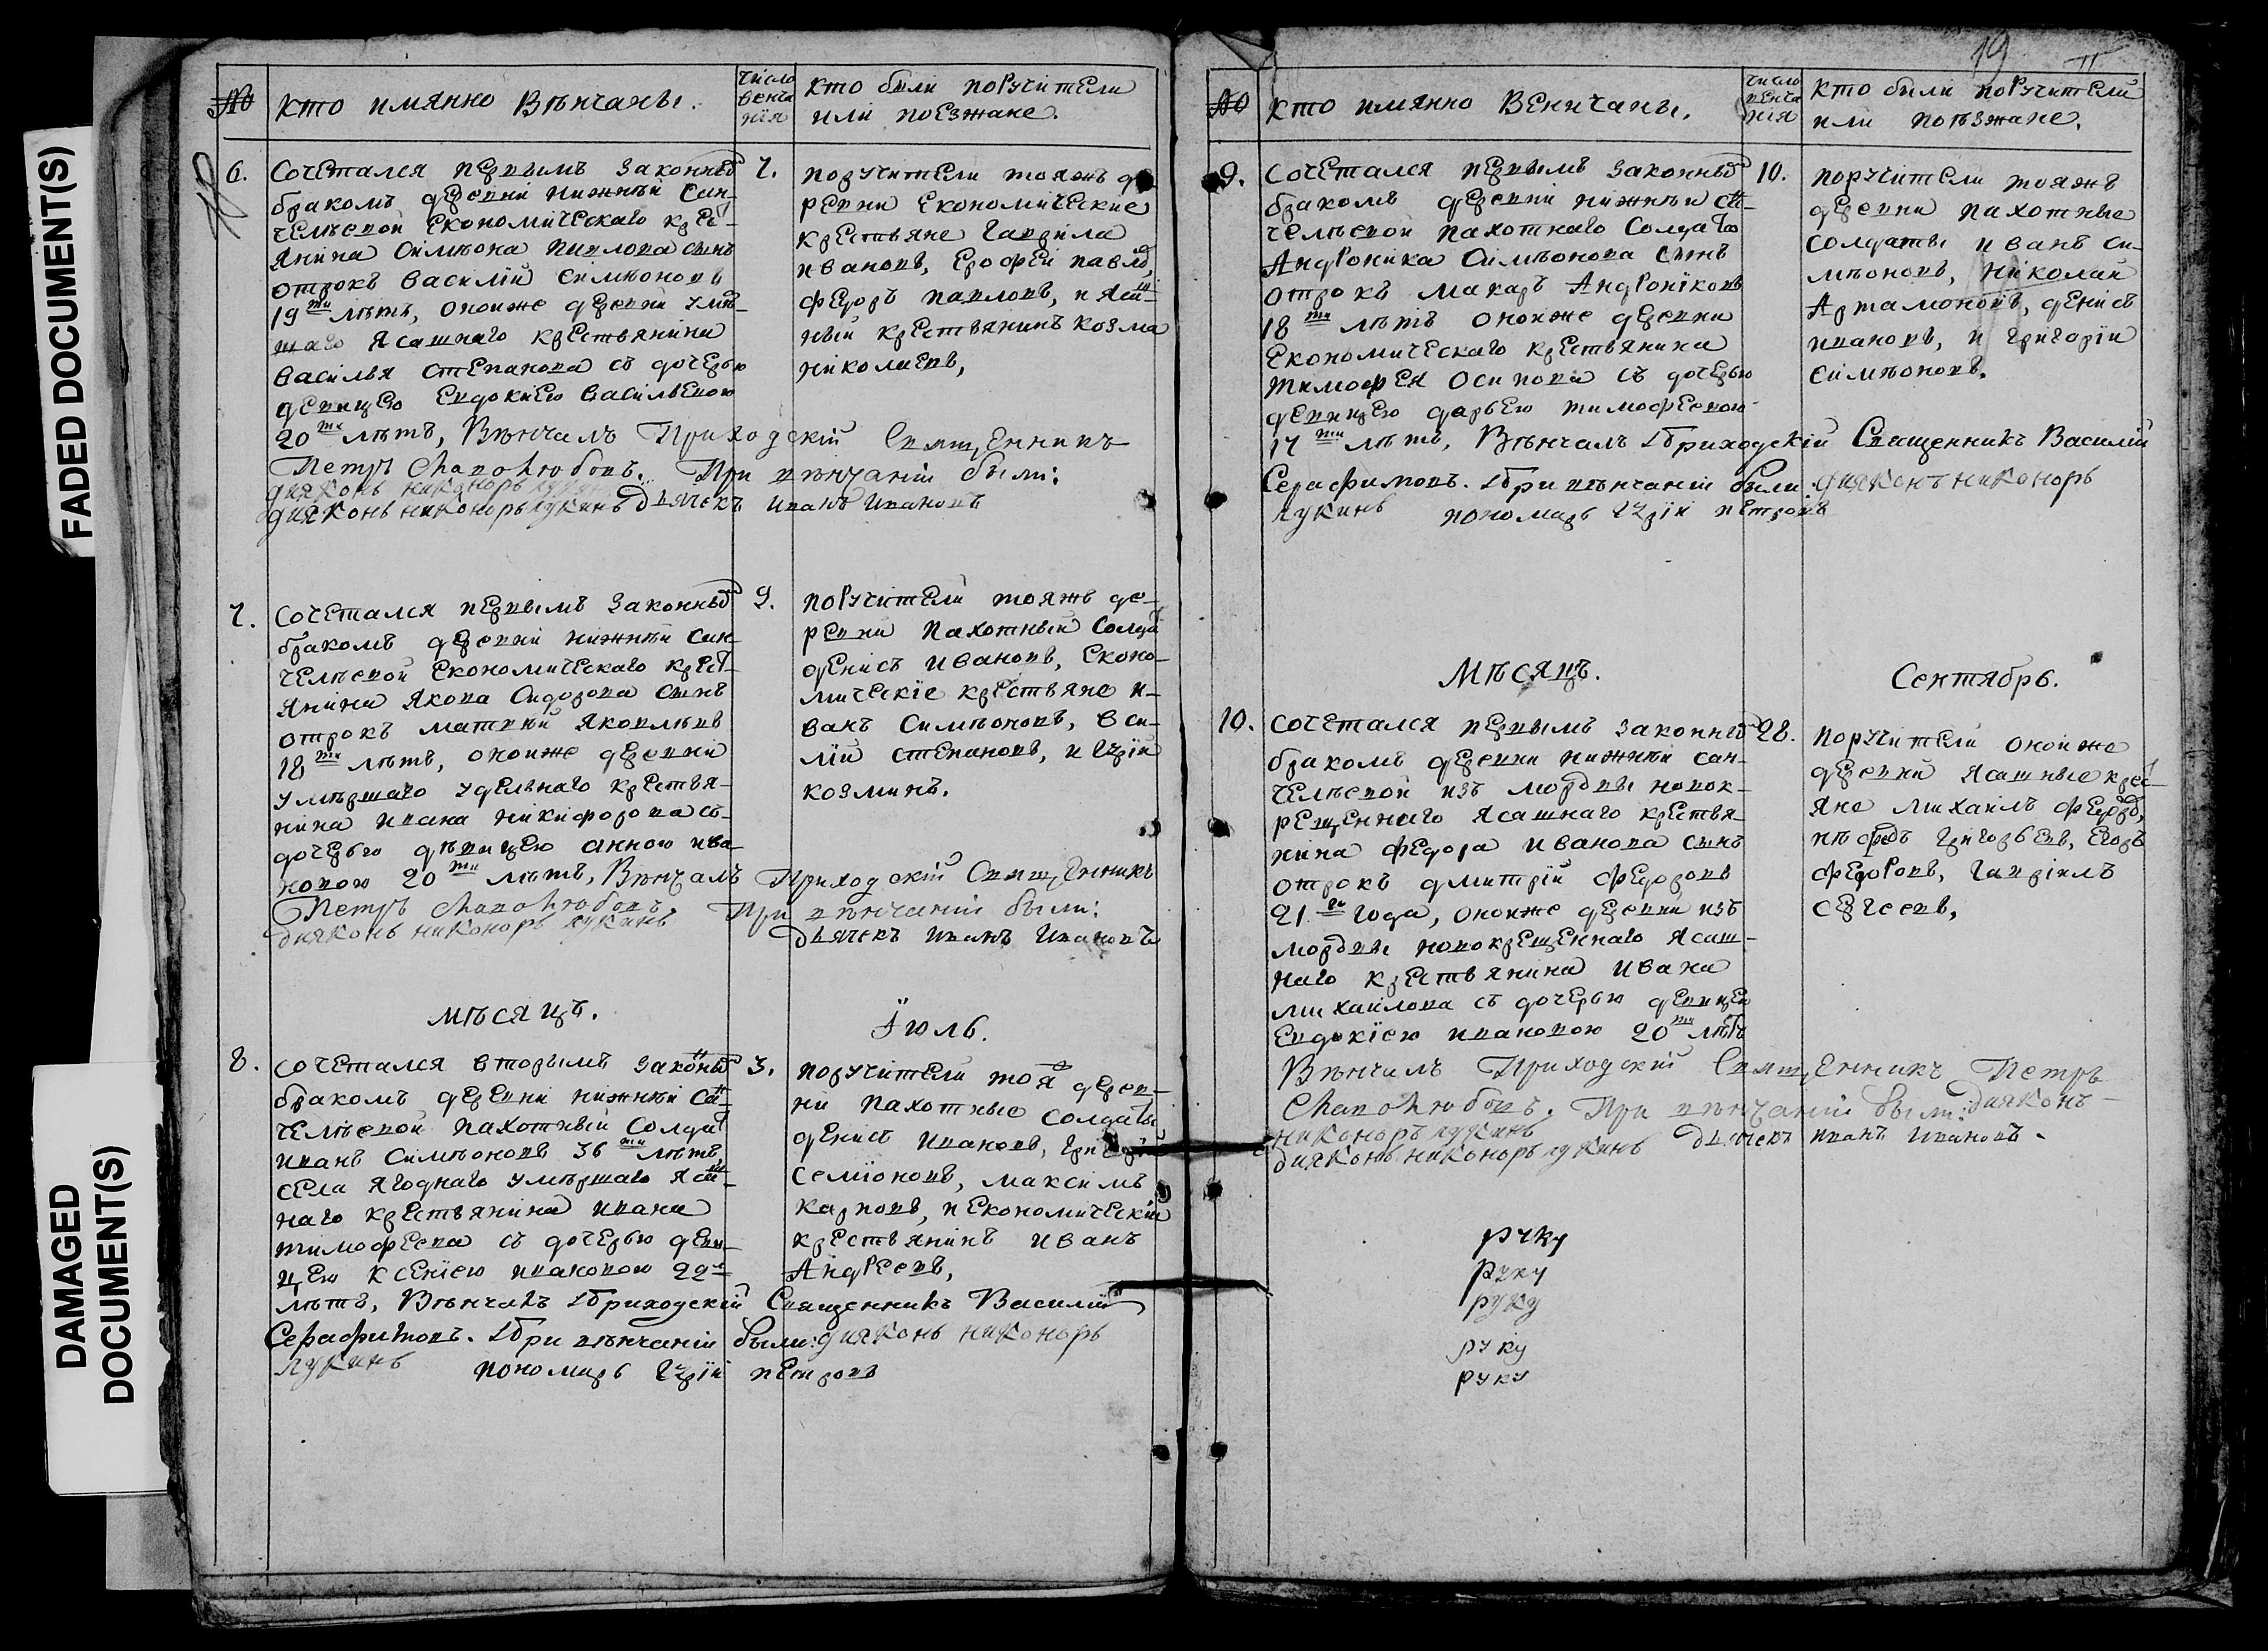 FADED DOCUMENT(S)
DAMAGED
DOCUMENT(S)
№
кто имянно Вѣнчаны.
число
венча
нïя
кто были поручители
или поезжане.
6.
Сочетался первымъ законнымъ
бракомъ деревни нижнѣй Сан-
челѣевой Економическаго крест-
янина Симѣона Павлова сынъ
отрокъ Василiй Симѣоновъ
19ти лѣтъ, оной же деревни умѣ-
шаго Ясашнаго крестьянина
Василья Степанова съ дочерью
девицею Евдокiею Васильевою
20ти лѣтъ, Вѣнчалъ Приходскiй Священникъ
Петръ Славолюбовъ. При вѣнчанiи были:
дияконъ никоноръ
дияконъ никоноръ лукинъ дьячекъ иванъ ивановъ
7.
поручители тояжъ де
ревни Економические
крестьяне Гаврила
ивановъ, Ерофей павло,
федоръ павловъ, и Ясаш-
ный крестьянинъ козма
николаевъ,
7.
Сочетался первымъ законнымъ
бракомъ деревни нижнѣй Сан-
челѣевой Економическаго крест-
янина Якова Сидорова сынъ
отрокъ матвѣй Яковлѣвъ
18ти лѣтъ, оной же деревни
умѣршаго удельнаго крестья-
нина ивана никифорова съ-
дочерью дѣвицею Анною ива-
новою 20ти лѣтъ, Вѣнчалъ Приходскiй Священникъ
Петръ Славолюбовъ. При вѣнчанiи были:
дияконъ никоноръ лукинъ дьячекъ иванъ ивановъ
9.
поручители тояжъ де-
ревни пахотный Солда
денисъ ивановъ, Еконо-
мическiе крестьяне и-
ванъ Симѣоновъ, васи-
лiй степановъ, и Юрiй
козминъ.
мѣсяцъ.
Iюль.
8.
сочетался вторымъ законнымъ
бракомъ деревни нижнѣй Сан-
челѣевой пахотный Солдатъ
иванъ Симѣоновъ 36ти лѣтъ,
села Ягоднаго умѣршаго Ясаш-
наго крестьянина ивана
тимофеева съ дочерью деви-
цею ксенïею ивановою 22хъ
лѣтъ, Вѣнчалъ Приходскiй Священникъ Василiй
Серафимовъ. При вѣнчанiи были: дияконъ никоноръ
лукинъ пономарь Юрiй петровъ
3.
поручители тояж дерев-
ни пахотные солдаты
денисъ ивановъ, григорiй
семïоновъ, максимъ
карповъ, и Економическiй
крестьянинъ иванъ
Андреевъ,
19
№
кто имянно Венчаны.
число
венча
нiя
кто были поручители
или поѣзжане.
9.
сочетался первымъ законнымъ
бракомъ деревни нижнѣй сан-
челѣевой пахотнаго Солдата
Андроника Симѣонова сынъ
отрокъ макаръ Андрониковъ
18ти лѣтъ оной же деревни
Економическаго крестьянина
тимофея осипова съ дочерью
девицею дарьею тимофеевою
17ти лѣтъ, Вѣнчалъ Приходскiй Священникъ Василiй
Серафимовъ. При вѣнчанiи были: дияконъ никоноръ
лукинъ пономарь Юрiй петровъ
10.
поручители тояжъ
деревни пахотные
солдаты иванъ си-
мѣоновъ, николай
Артамоновъ, денисъ
ивановъ, и григорiй
симѣоновъ.
Мѣсяцъ.
Сентябрь.
10.
сочетался первымъ законнымъ
бракомъ деревни нижнѣй сан-
челѣевой изъ мордвы новок-
рещеннаго Ясашнаго крестья-
нина федора иванова сынъ
отрокъ дмитрiй федоровъ
21го года, оной же деревни изъ
мордвы новокрещеннаго Ясаш-
наго крестьянина ивана
михайлова съ дочерью девицею
Евдокïею ивановою 20ти лѣтъ
Вѣнчалъ Приходскiй Священникъ Петръ
Славолюбовъ. При вѣнчанiи были: дияконъ
никоноръ лукинъ
дияконъ никоноръ лукинъ дьячекъ иванъ ивановъ.
28.
поручители оной же
деревни Ясашные крес-
яне михаилъ федоро,
григорьевъ, Егоръ
федоровъ, гаврiилъ
сергеевъ,
руку
руку
руку
руку
руку